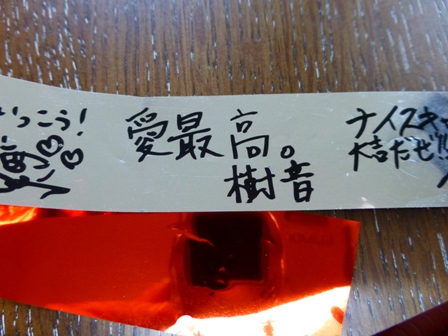 がっこう!
愛最高。
樹音
ナイスキャ
大吉だぜ!!